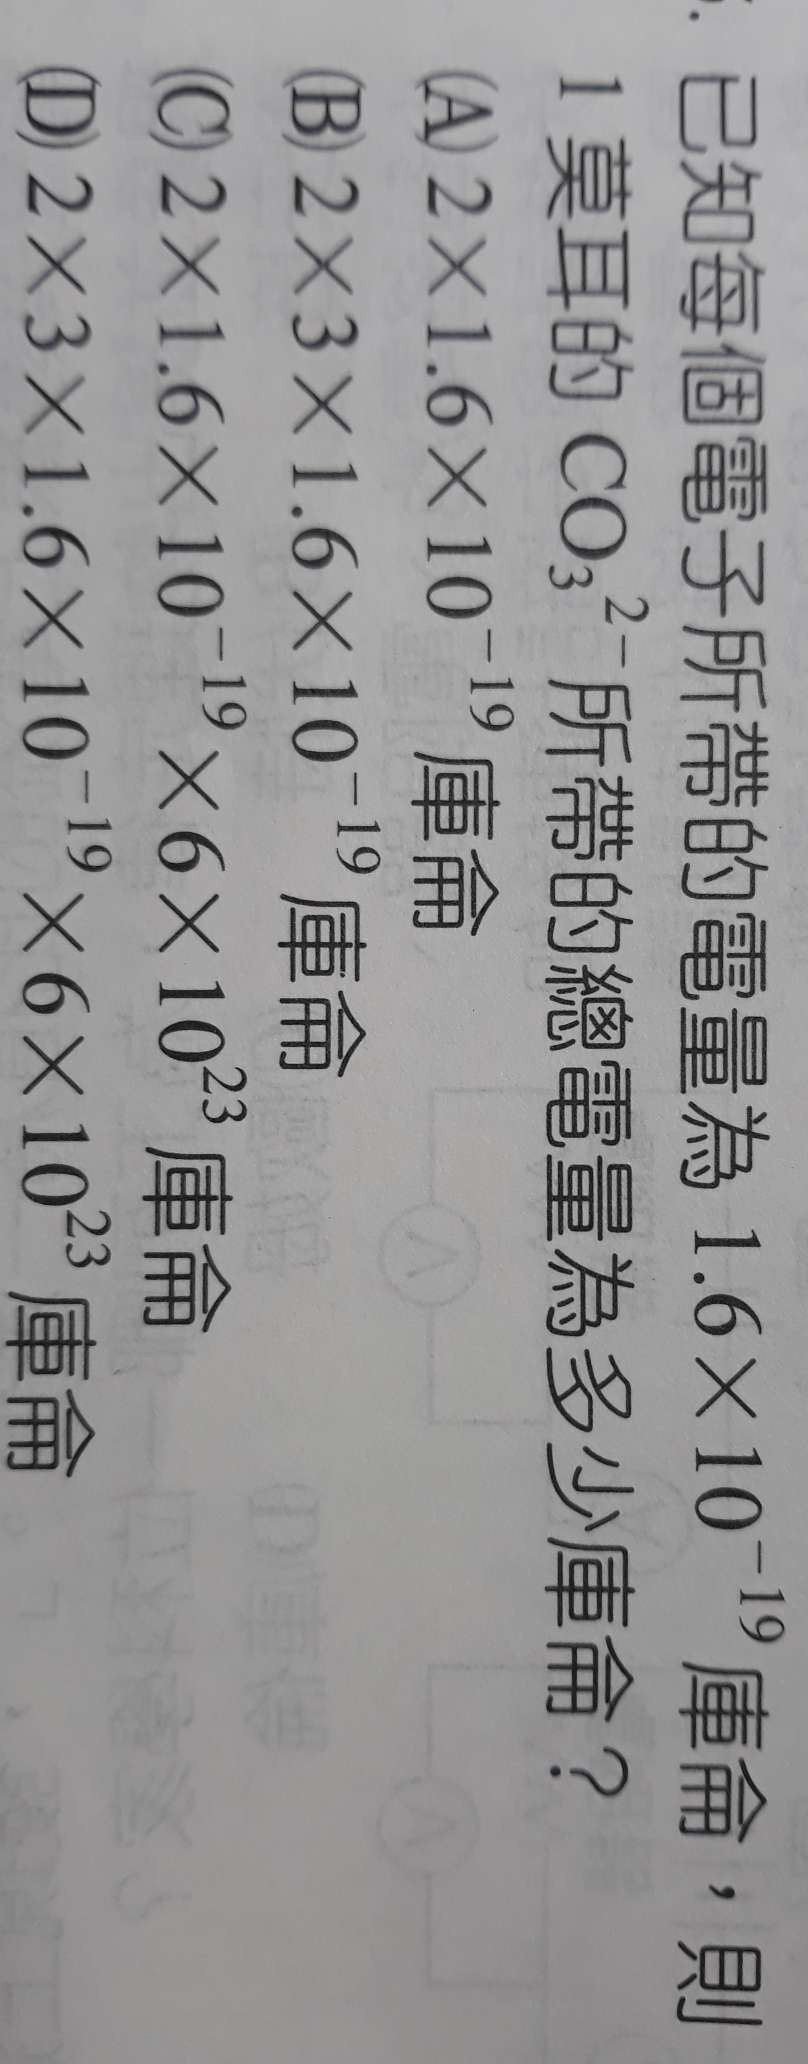 已知每個電子所帶的電量為 1.6×10⁻¹⁹ 庫侖，則
1 莫耳的 CO₃²⁻ 所帶的總電量為多少庫侖？
(A) 2×1.6×10⁻¹⁹ 庫侖
(B) 2×3×1.6×10⁻¹⁹ 庫侖
(C) 2×1.6×10⁻¹⁹×6×10²³ 庫侖
(D) 2×3×1.6×10⁻¹⁹×6×10²³ 庫侖